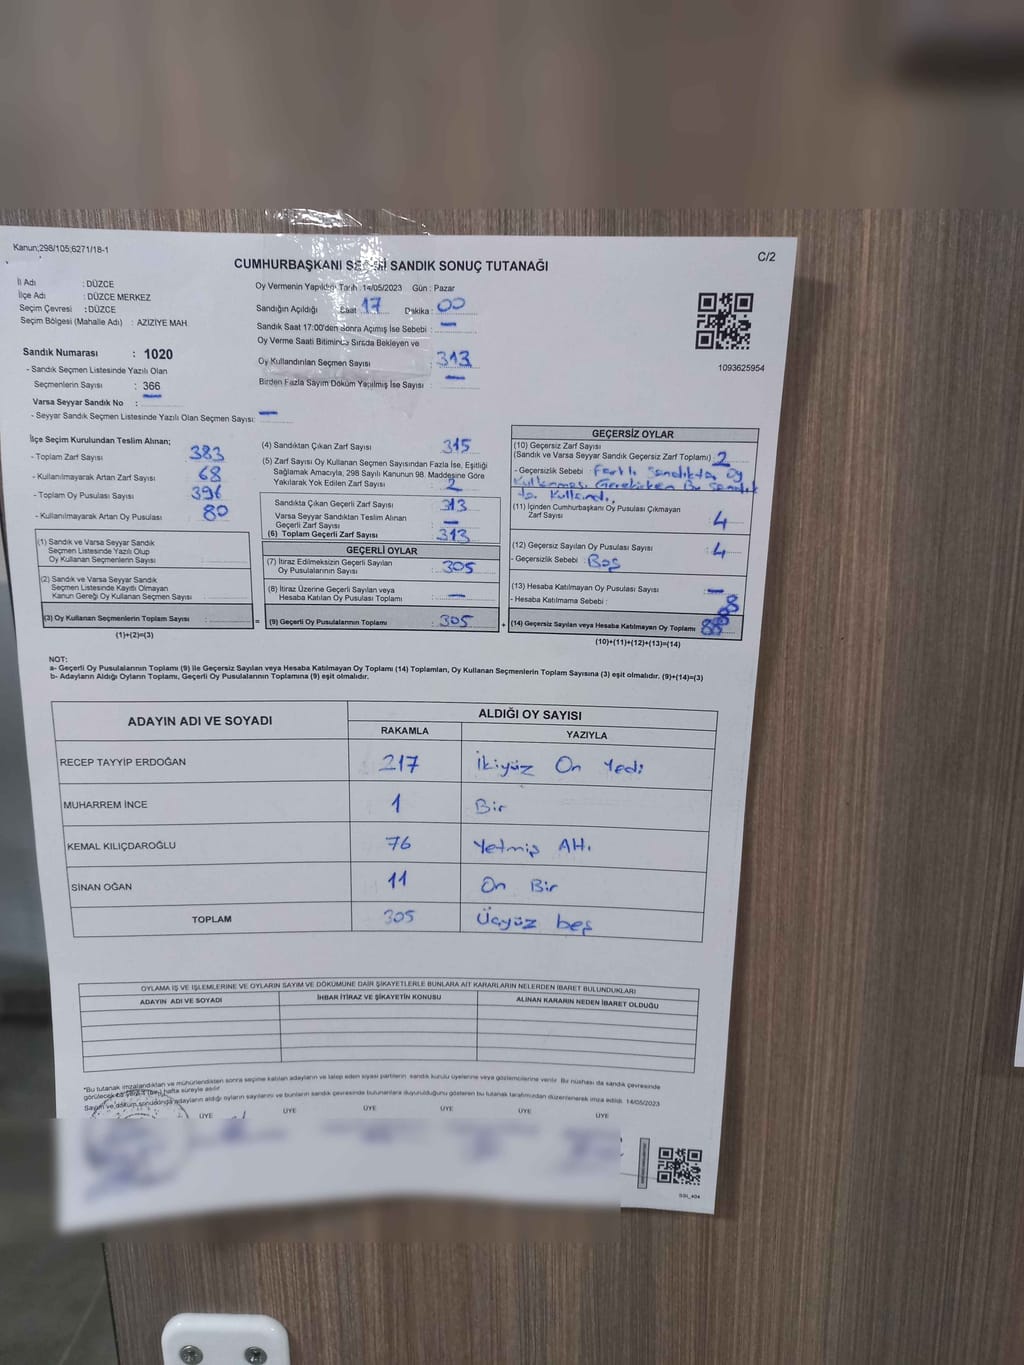 Kanun;298/105;6271/18-1
C/2
CUMHURBAŞKANI SEÇİMİ SANDIK SONUÇ TUTANAĞI
İl Adı : DÜZCE
İlçe Adı : DÜZCE MERKEZ
Seçim Çevresi : DÜZCE
Seçim Bölgesi (Mahalle Adı) : AZİZİYE MAH.
Sandık Numarası : 1020
- Sandık Seçmen Listesinde Yazılı Olan
Seçmenlerin Sayısı : 366
Varsa Seyyar Sandık No : —
- Seyyar Sandık Seçmen Listesinde Yazılı Olan Seçmen Sayısı: —
Oy Vermenin Yapıldığı Tarih : 14/05/2023 Gün : Pazar
Sandığın Açıldığı Saat : 17 Dakika : 00
Sandık Saat 17:00'den Sonra Açımış İse Sebebi : —
Oy Verme Saati Bitiminde Sırada Bekleyen ve
Oy Kullandırılan Seçmen Sayısı : 313
Birden Fazla Sayım Döküm Yapılmış İse Sayısı : —
1093625954
İlçe Seçim Kurulundan Teslim Alınan;
- Toplam Zarf Sayısı : 383
- Kullanılmayarak Artan Zarf Sayısı : 68
- Toplam Oy Pusulası Sayısı : 396
- Kullanılmayarak Artan Oy Pusulası : 80
(1) Sandık ve Varsa Seyyar Sandık
Seçmen Listesinde Yazılı Olup
Oy Kullanan Seçmenlerin Sayısı :
(2) Sandık ve Varsa Seyyar Sandık
Seçmen Listesinde Kayıtlı Olmayan
Kanun Gereği Oy Kullanan Seçmen Sayısı :
(3) Oy Kullanan Seçmenlerin Toplam Sayısı :
(1)+(2)=(3)
(4) Sandıktan Çıkan Zarf Sayısı : 315
(5) Zarf Sayısı Oy Kullanan Seçmen Sayısından Fazla İse, Eşitliği
Sağlamak Amacıyla, 298 Sayılı Kanunun 98. Maddesine Göre
Yakılarak Yok Edilen Zarf Sayısı : 2
Sandıkta Çıkan Geçerli Zarf Sayısı : 313
Varsa Seyyar Sandıktan Teslim Alınan
Geçerli Zarf Sayısı : —
(6) Toplam Geçerli Zarf Sayısı : 313
GEÇERLİ OYLAR
(7) İtiraz Edilmeksizin Geçerli Sayılan
Oy Pusulalarının Sayısı : 305
(8) İtiraz Üzerine Geçerli Sayılan veya
Hesaba Katılan Oy Pusulası Toplamı : —
= (9) Geçerli Oy Pusulalarının Toplamı : 305
GEÇERSİZ OYLAR
(10) Geçersiz Zarf Sayısı
(Sandık ve Varsa Seyyar Sandık Geçersiz Zarf Toplamı) : 2
- Geçersizlik Sebebi : Farklı Sandıkta Oy
Kullanması Gerekirken Bu Sandık
ta Kullandı.
(11) İçinden Cumhurbaşkanı Oy Pusulası Çıkmayan
Zarf Sayısı : 4
(12) Geçersiz Sayılan Oy Pusulası Sayısı : 4
- Geçersizlik Sebebi : Boş
(13) Hesaba Katılmayan Oy Pusulası Sayısı : —
- Hesaba Katılmama Sebebi : 8
+ (14) Geçersiz Sayılan veya Hesaba Katılmayan Oy Toplamı :
(10)+(11)+(12)+(13)=(14)
NOT:
a- Geçerli Oy Pusulalarının Toplamı (9) ile Geçersiz Sayılan veya Hesaba Katılmayan Oy Toplamı (14) Toplamları, Oy Kullanan Seçmenlerin Toplam Sayısına (3) eşit olmalıdır. (9)+(14)=(3)
b- Adayların Aldığı Oyların Toplamı, Geçerli Oy Pusulalarının Toplamına (9) eşit olmalıdır.
ADAYIN ADI VE SOYADI
ALDIĞI OY SAYISI
RAKAMLA YAZIYLA
RECEP TAYYİP ERDOĞAN 217 İkiyüz On Yedi
MUHARREM İNCE 1 Bir
KEMAL KILIÇDAROĞLU 76 Yetmiş Altı
SİNAN OĞAN 11 On Bir
TOPLAM 305 Üçyüz beş
OYLAMA İŞ VE İŞLEMLERİNE VE OYLARIN SAYIM VE DÖKÜMÜNE DAİR ŞİKAYETLERLE BUNLARA AİT KARARLARIN NELERDEN İBARET BULUNDUKLARI
ADAYIN ADI VE SOYADI İHBAR İTİRAZ VE ŞİKAYETİN KONUSU ALINAN KARARIN NEDEN İBARET OLDUĞU
*Bu tutanak imzalandıktan ve mühürlendikten sonra seçime katılan adayların ve talep eden siyasi partilerin sandık kurulu üyelerine veya gözlemcilerine verilir. Bir nüshası da sandık çevresinde
görülecek bir yere (bir) hafta süreyle asılır.
Sayım ve döküm sonucunda adayların aldığı oyların sayılarını ve bunların sandık çevresinde bulunanlara duyurulduğunu gösteren bu tutanak tarafımızdan düzenlenerek imza edildi. 14/05/2023
ÜYE ÜYE ÜYE ÜYE ÜYE ÜYE